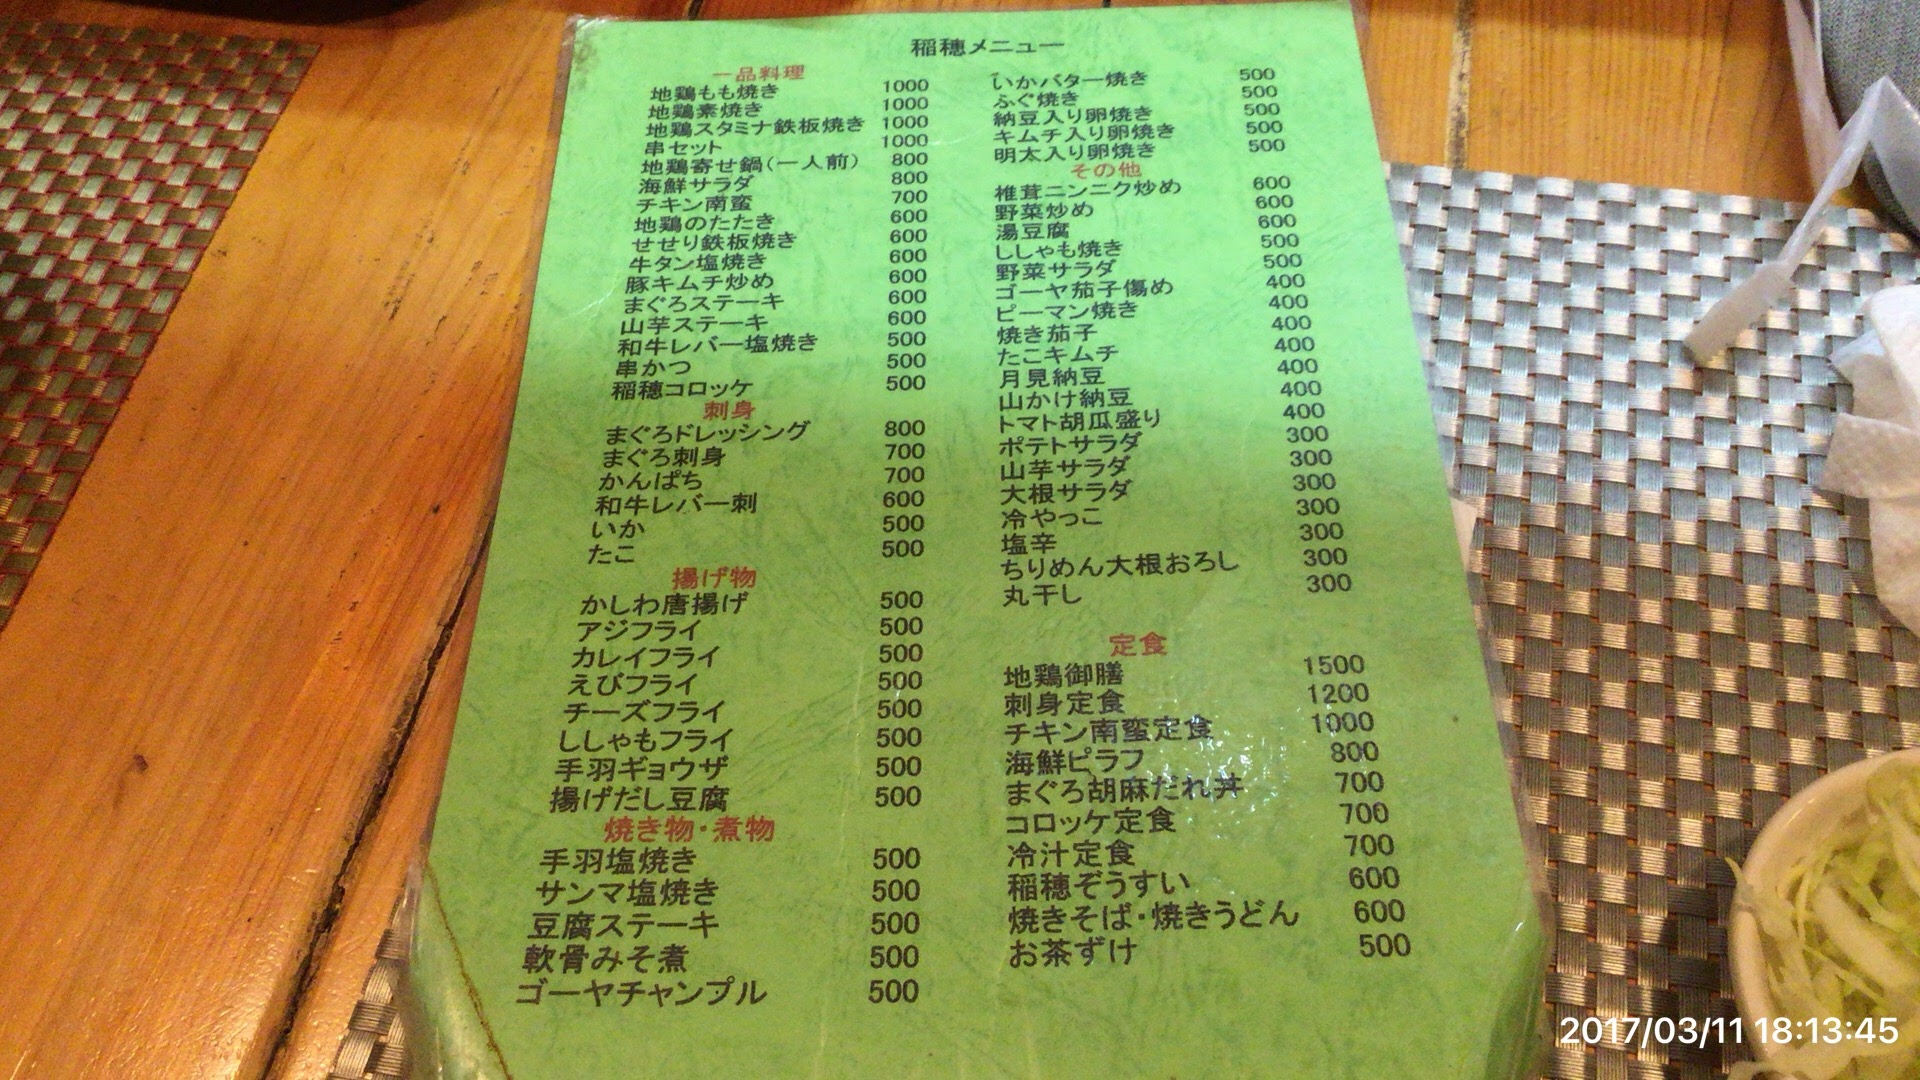 稲穂メニュー
一品料理
地鶏もも焼き 1000
地鶏素焼き 1000
地鶏スタミナ鉄板焼き 1000
串セット 1000
地鶏寄せ鍋(一人前) 800
海鮮サラダ 800
チキン南蛮 700
地鶏のたたき 600
せせり鉄板焼き 600
牛タン塩焼き 600
豚キムチ炒め 600
まぐろステーキ 600
山芋ステーキ 600
和牛レバー塩焼き 500
串かつ 500
稲穂コロッケ 500
刺身
まぐろドレッシング 800
まぐろ刺身 700
かんぱち 700
和牛レバー刺 600
いか 500
たこ 500
揚げ物
かしわ唐揚げ 500
アジフライ 500
カレイフライ 500
えびフライ 500
チーズフライ 500
ししゃもフライ 500
手羽ギョウザ 500
揚げだし豆腐 500
焼き物・煮物
手羽塩焼き 500
サンマ塩焼き 500
豆腐ステーキ 500
軟骨みそ煮 500
ゴーヤチャンプル 500
いかバター焼き 500
ふぐ焼き 500
納豆入り卵焼き 500
キムチ入り卵焼き 500
明太入り卵焼き 500
その他
椎茸ニンニク炒め 600
野菜炒め 600
湯豆腐 600
ししゃも焼き 500
野菜サラダ 500
ゴーヤ茄子傷め 400
ピーマン焼き 400
焼き茄子 400
たこキムチ 400
月見納豆 400
山かけ納豆 400
トマト胡瓜盛り 400
ポテトサラダ 300
山芋サラダ 300
大根サラダ 300
冷やっこ 300
塩辛 300
ちりめん大根おろし 300
丸干し 300
定食
地鶏御膳 1500
刺身定食 1200
チキン南蛮定食 1000
海鮮ピラフ 800
まぐろ胡麻だれ丼 700
コロッケ定食 700
冷汁定食 700
稲穂ぞうすい 600
焼きそば・焼きうどん 600
お茶ずけ 500
2017/03/11 18:13:45